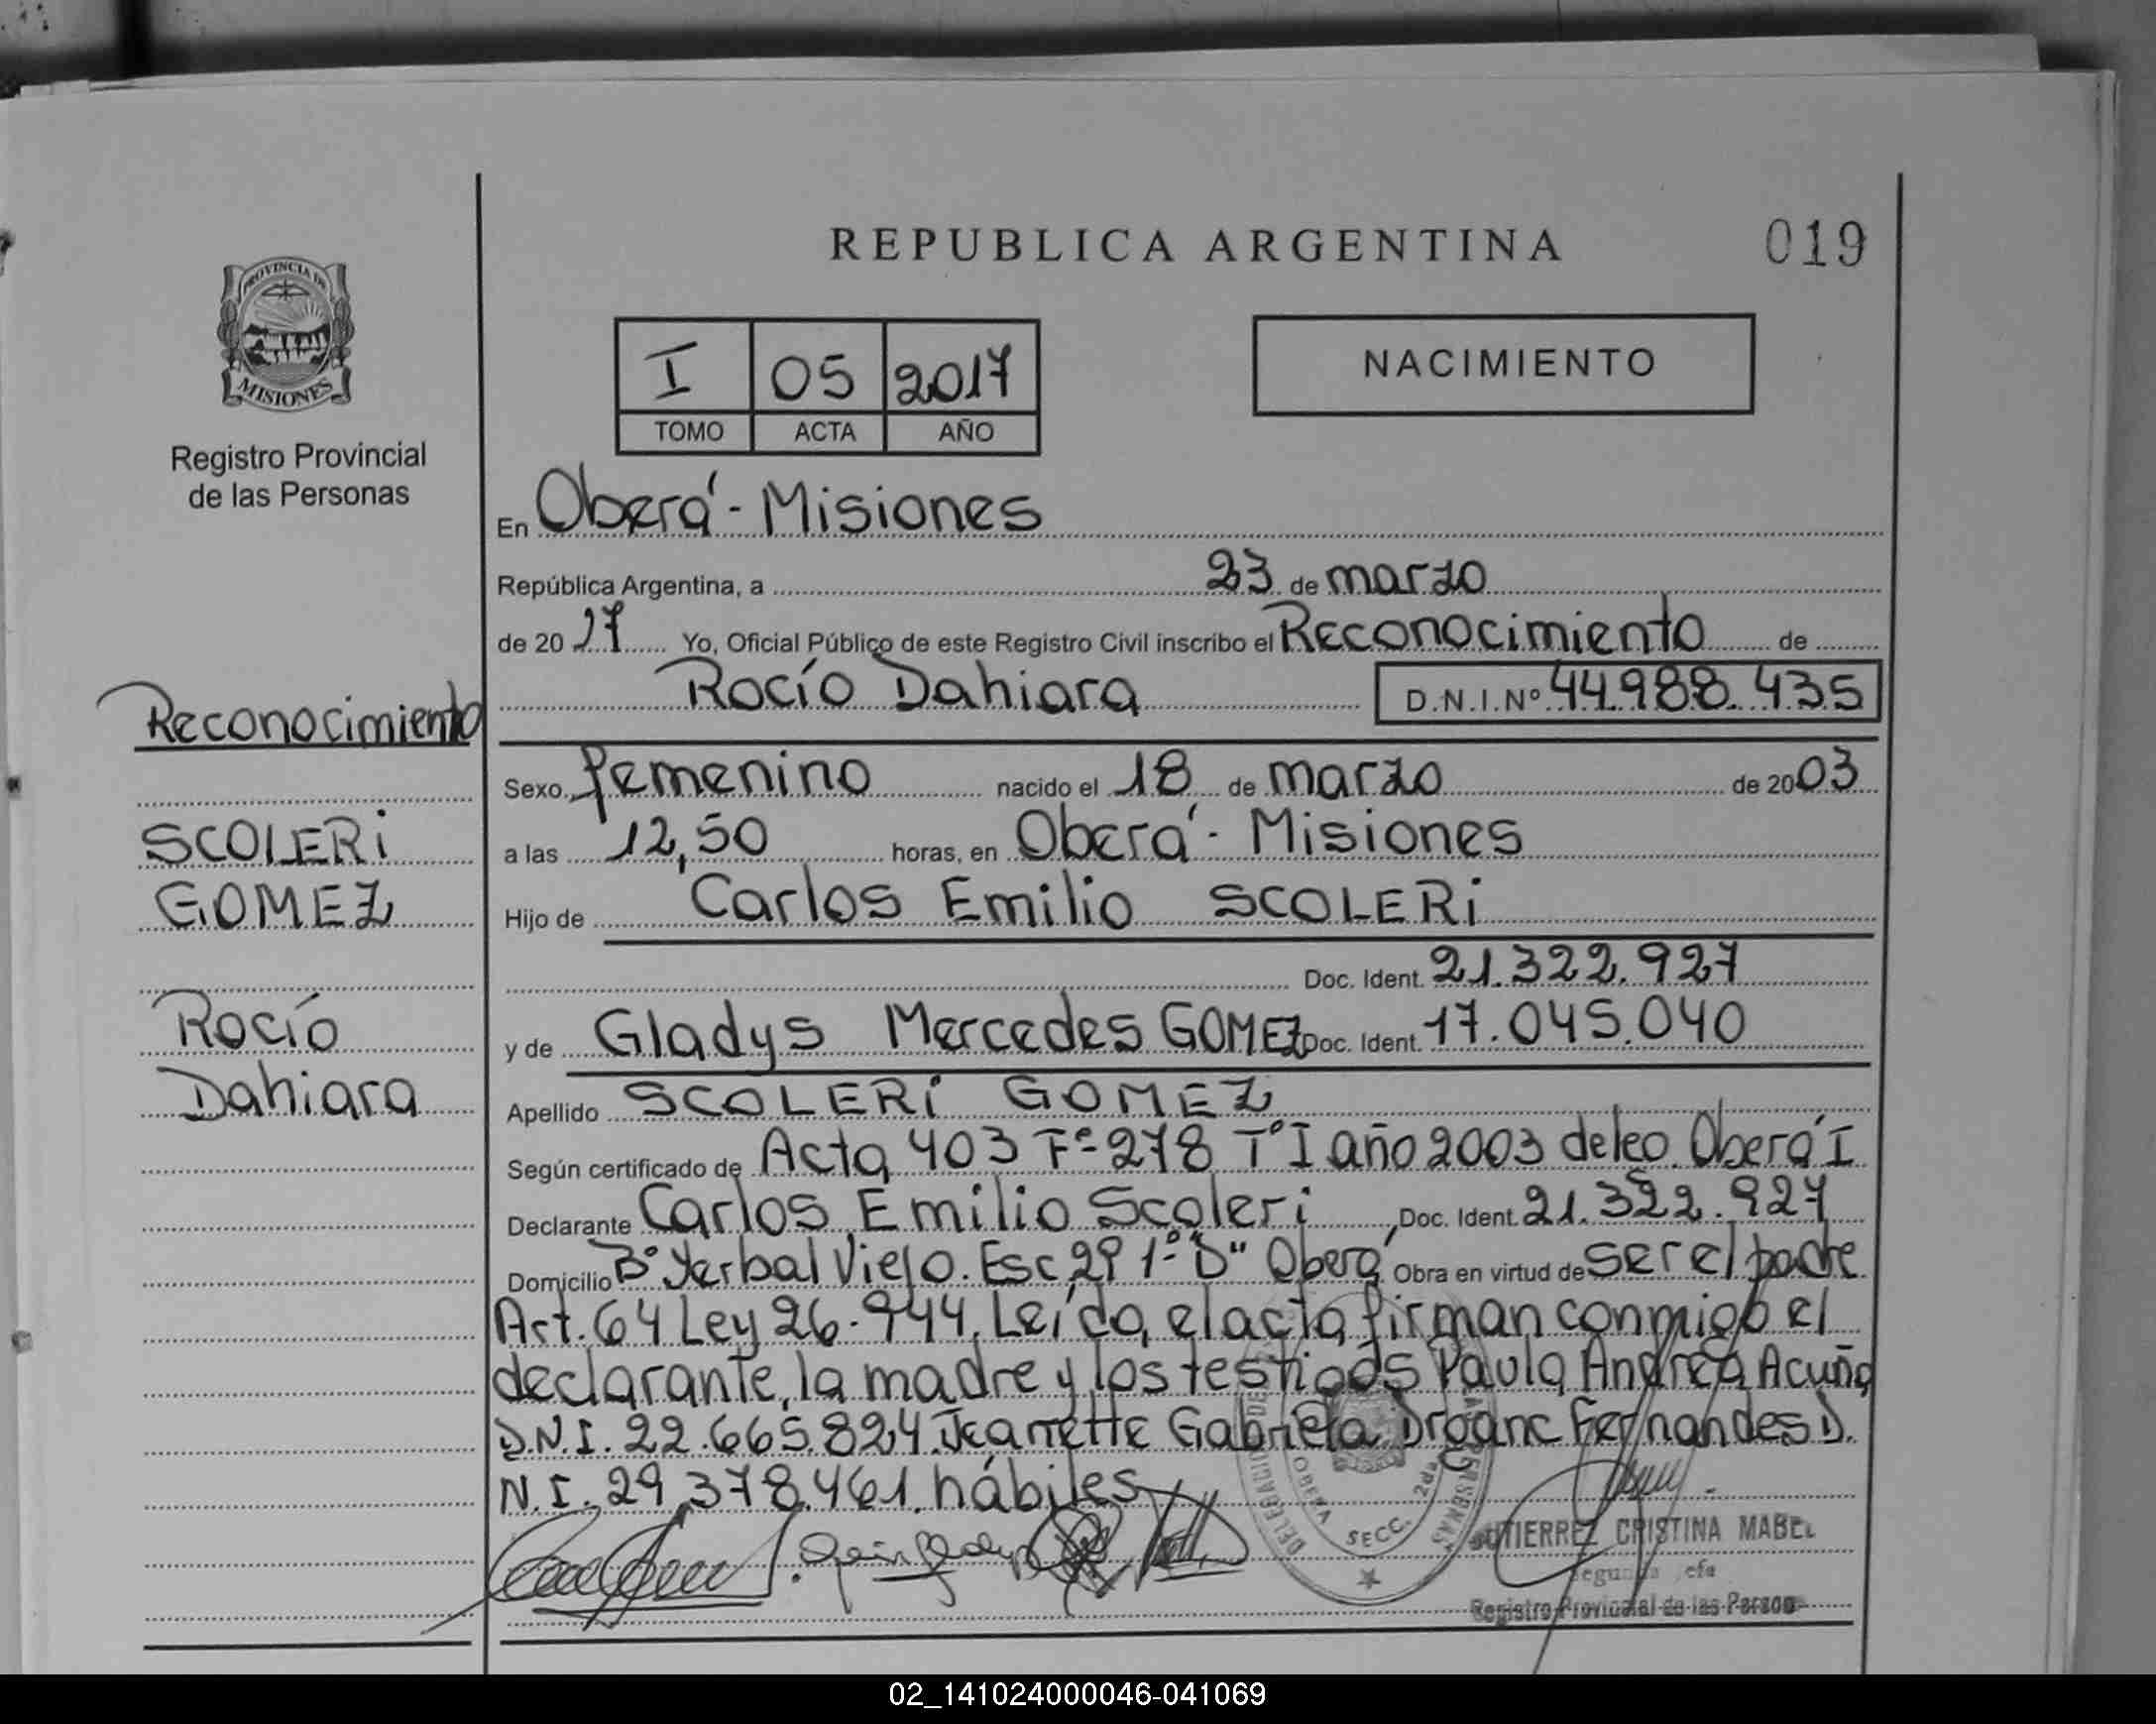 REPUBLICA ARGENTINA
019
PROVINCIA DE
MISIONES
Registro Provincial
de las Personas
I 05 2017
TOMO ACTA AÑO
NACIMIENTO
En Oberá - Misiones
República Argentina, a 23 de marzo
de 20 17 Yo, Oficial Público de este Registro Civil inscribo el Reconocimiento de
Rocío Dahiara D.N.I.Nº 44.988.435
Reconocimiento
SCOLERi
GOMEZ
Rocío
Dahiara
Sexo femenino nacido el 18 de marzo de 2003
a las 12,50 horas, en Oberá - Misiones
Hijo de Carlos Emilio SCOLERi
Doc. Ident. 21.322.927
y de Gladys Mercedes GOMEZ Doc. Ident. 17.045.040
Apellido SCOLERi GOMEZ
Según certificado de Acta 403 Fº 278 Tº I año 2003 deleo. Oberá I
Declarante Carlos Emilio Scoleri, Doc. Ident. 21.322.927
Domicilio Bº Yerbal Viejo. Esc 29 1º "D" Oberá Obra en virtud de ser el padre
Art. 64 Ley 26.944. Leída el acta firman conmigo el
declarante, la madre y los testigos Paula Andrea Acuña
D.N.I. 22.665.824. Jeanette Gabriela Drganc Fernandes D.
N.I. 29.378.461. hábiles
DELEGACION DE
OBERA SECC. 2da
PERSONAS
GUTIERREZ CRISTINA MABEL
Registro Provincial de las Person
02_141024000046-041069